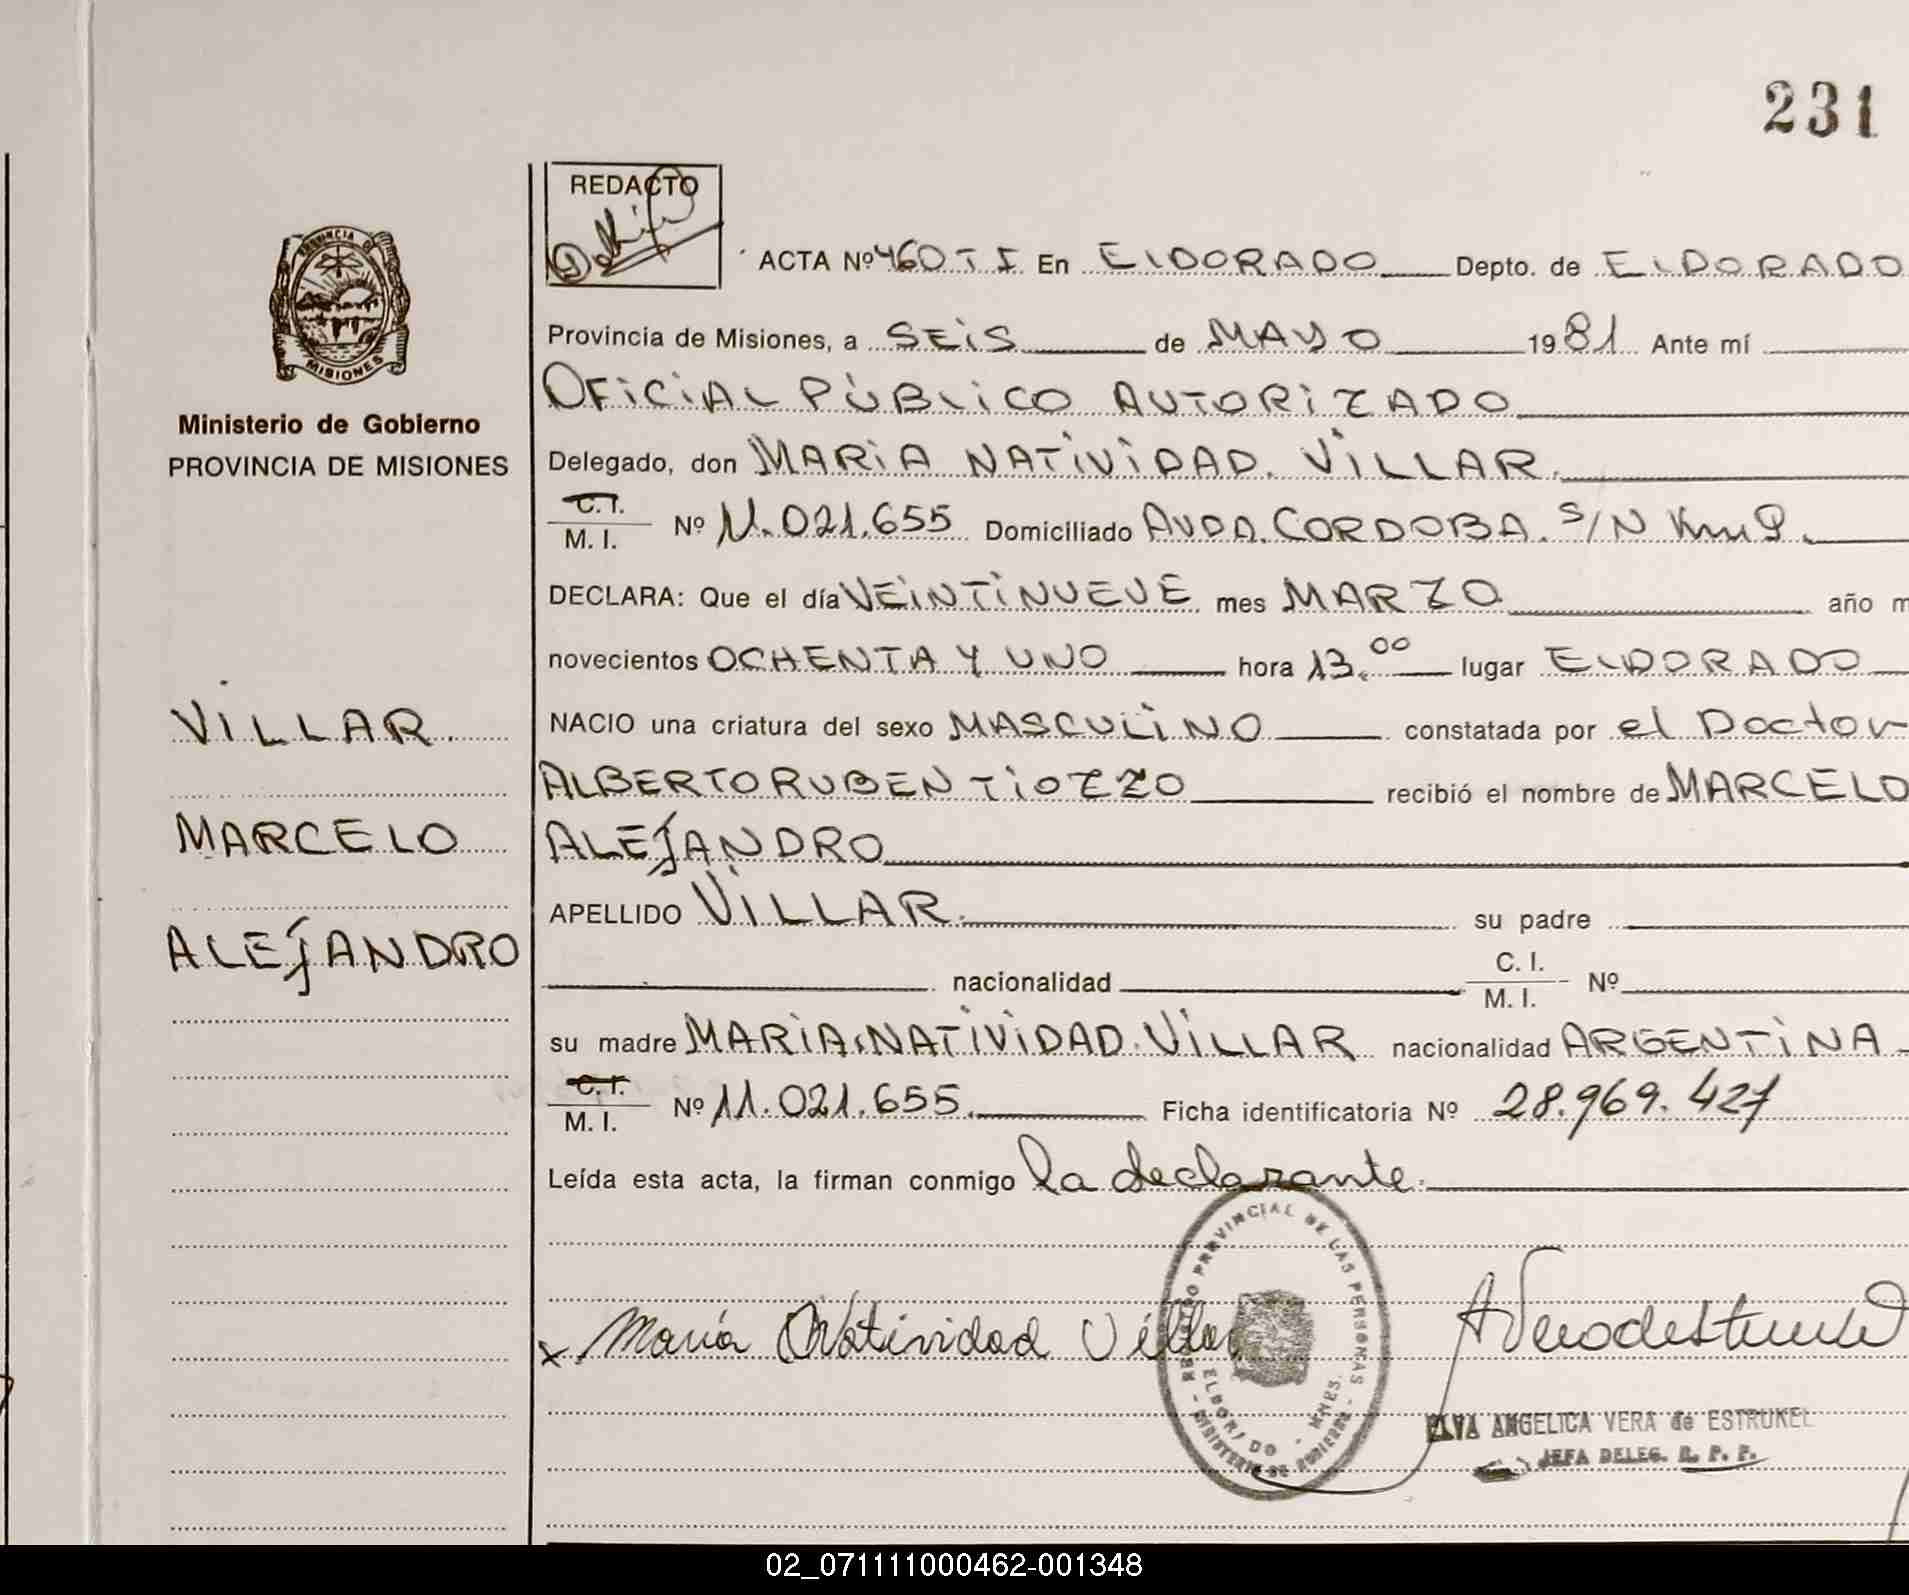 231
REDACTO
ACTA Nº 460 T I. En ELDORADO Depto. de ELDORADO
Provincia de Misiones, a SEIS de MAYO 1981 Ante mí
OFICIAL PÚBLICO AUTORIZADO
Delegado, don MARIA NATIVIDAD. VILLAR.
C.I.
M. I. Nº 11.021.655 Domiciliado AVDA. CORDOBA. S/N Km 9.
DECLARA: Que el día VEINTINUEVE mes MARZO año m
novecientos OCHENTA Y UNO hora 13.00 lugar ELDORADO
NACIO una criatura del sexo MASCULINO constatada por el Doctor
ALBERTO RUBEN TIOZZO recibió el nombre de MARCELO
ALEJANDRO
APELLIDO VILLAR. su padre
nacionalidad C. I.
M. I. Nº
su madre MARIA NATIVIDAD. VILLAR nacionalidad ARGENTINA
C. I.
M. I. Nº 11.021.655. Ficha identificatoria Nº 28.969.427
Leída esta acta, la firman conmigo la declarante.
x María Natividad Villar
REGISTRO PROVINCIAL DE LAS PERSONAS
ELDORADO - MNES.
- MINISTERIO DE GOBIERNO -
ELVA ANGELICA VERA de ESTRUKEL
JEFA DELEG. R. P. P.
PROVINCIA DE
MISIONES
Ministerio de Gobierno
PROVINCIA DE MISIONES
VILLAR.
MARCELO
ALEJANDRO
02_071111000462-001348